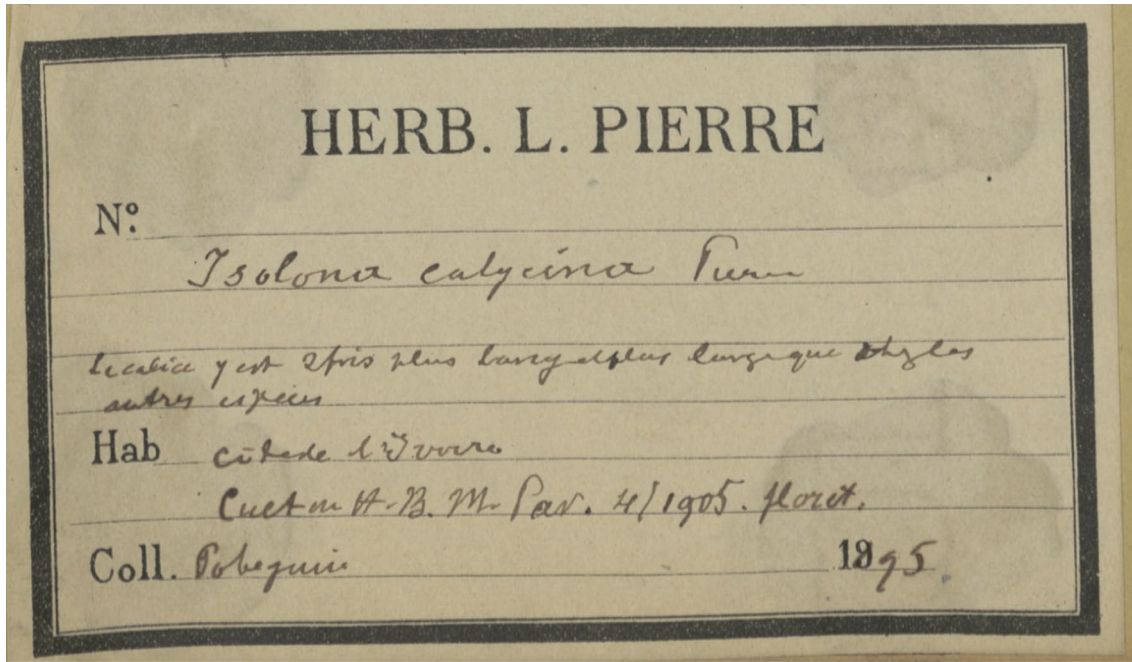 HERB. L. PIERRE
No.
Isolona calycina Pierre
le calice y est 2 fois plus long et plus large que chez les
autres espèces
Hab côte de l'Ivoire
Cult in H. B. M. Par. 4/1905. floret.
Coll. Pobeguin 1895.